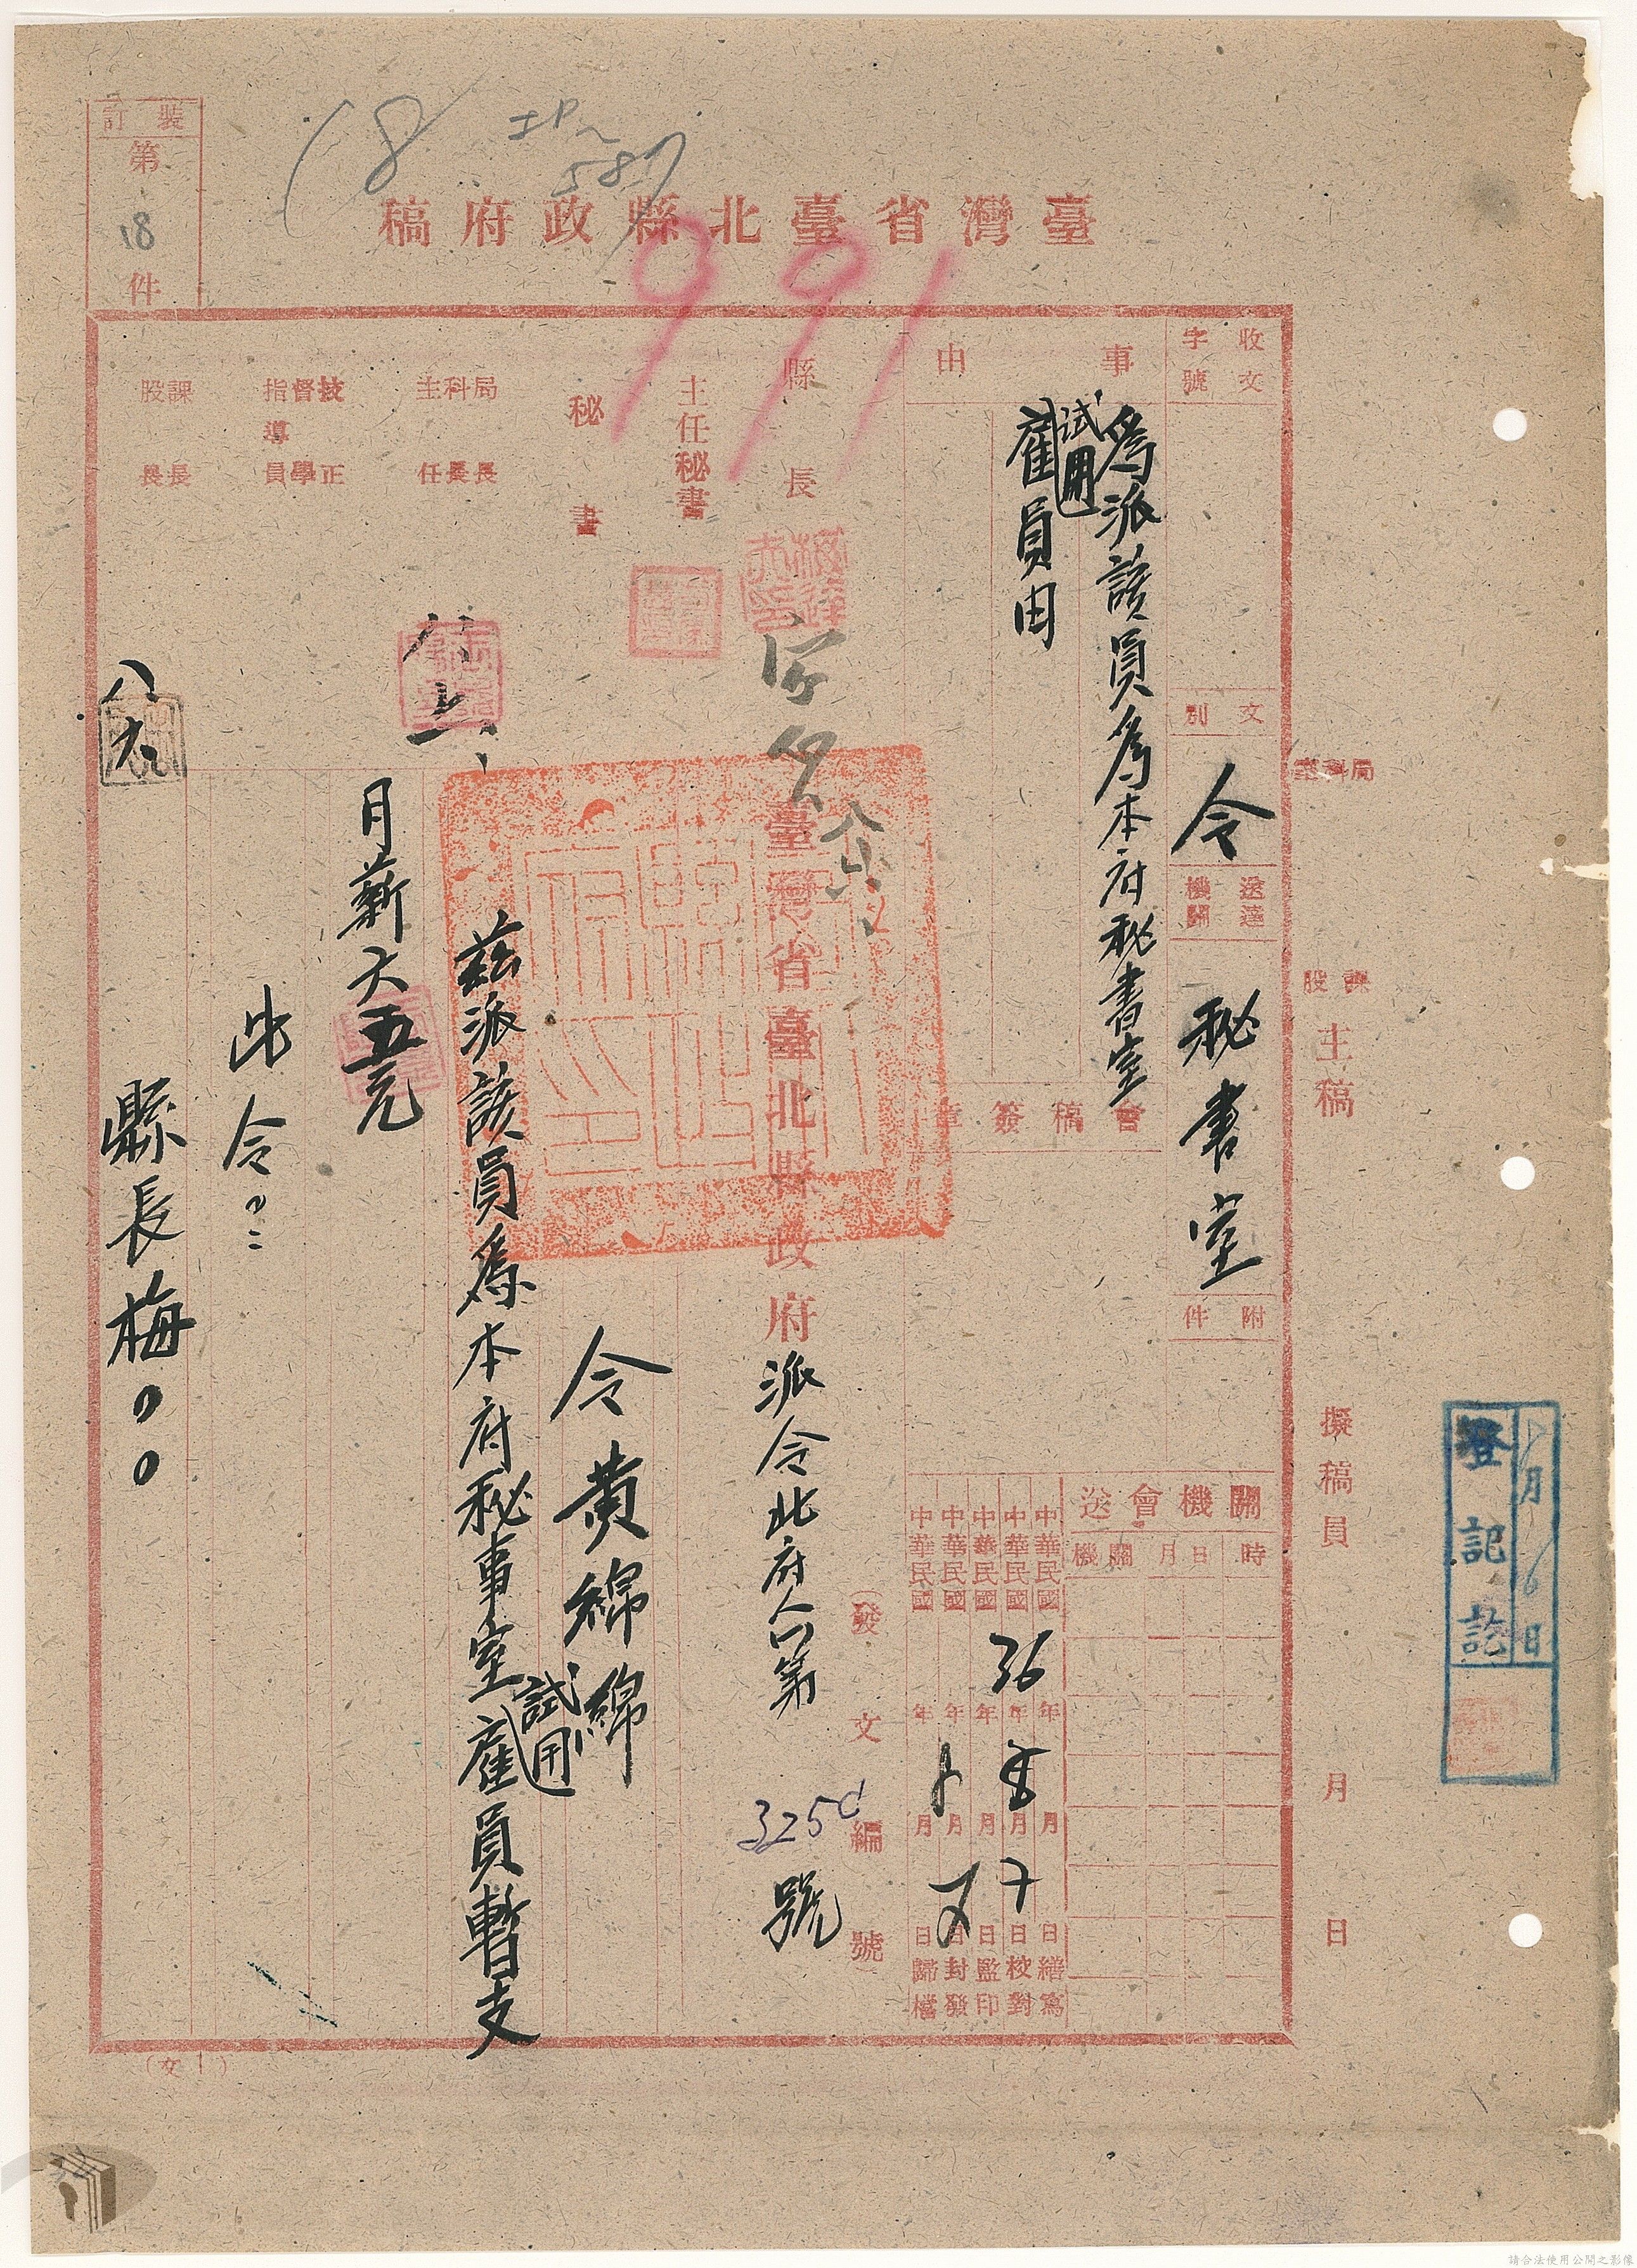 裝訂
第
18
件
臺灣省臺北縣政府稿
991
收文
字號
事由
為派該員為本府秘書室
試用
雇員由
縣長
主任秘書
秘書
局科主
長長任
技督指導
正學員
課股
長長
文別
令
送達機關
秘書室
附件
局科室
課股
主稿
擬稿員
月
日
會稿簽章
關機會送
時
月日
機關
中華民國 年 月 日繕寫
中華民國 36 年 月 十 日校對
中華民國 年 月 日監印
中華民國 年 月 日封發
中華民國 年 月 日歸檔
發文編號
臺灣省臺北縣政府
派令北府人第
號
令黃綿綿
茲派該員為本府秘事室試用雇員暫支
月薪六五元
此令
縣長梅〇〇
月6日
登記訖
請合法使用公開之影像